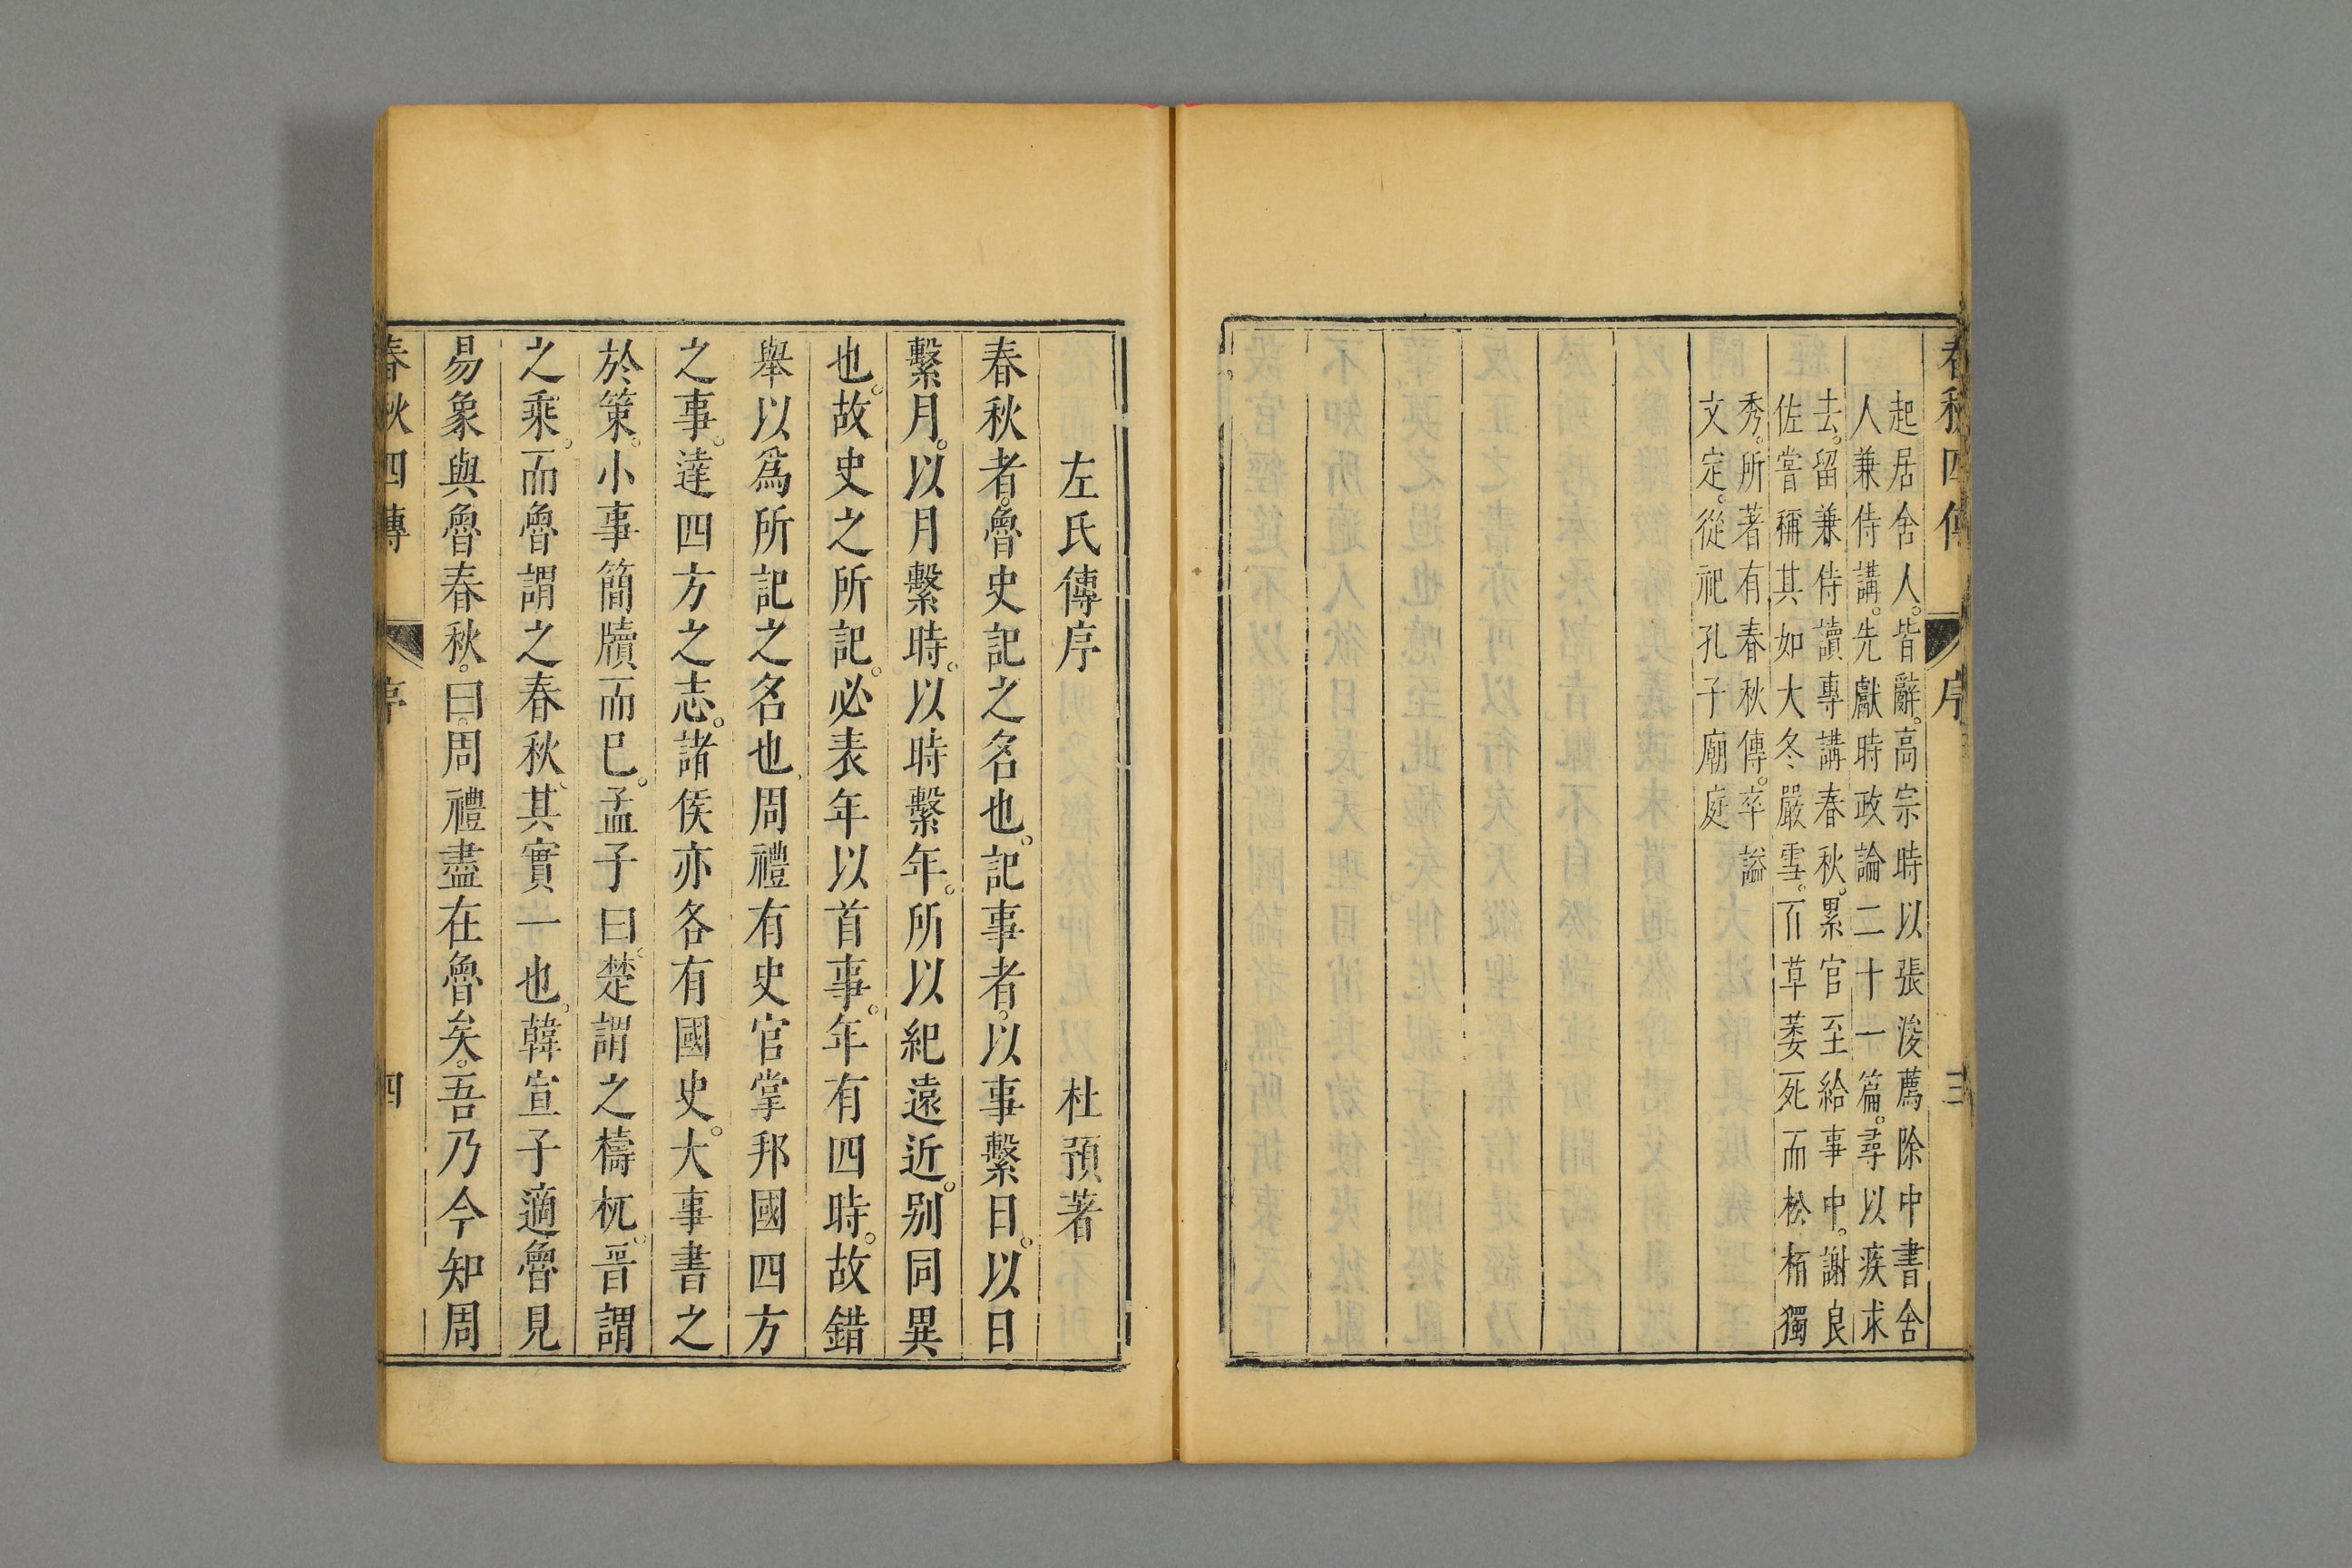 春秋四傳 序 三
起居舍人。皆辭。高宗時以張浚薦除中書舍
人兼侍講。先獻時政論二十一篇。尋以疾求
去。留兼侍讀專講春秋。累官至給事中。謝良
佐嘗稱其如大冬嚴雪。百草萎死而松栢獨
秀。所著有春秋傳。卒謚
文定。從祀孔子廟庭
左氏傳序 杜預著
春秋者。魯史記之名也。記事者。以事繫日。以日
繫月。以月繫時。以時繫年。所以紀遠近。别同異
也。故史之所記。必表年以首事。年有四時。故錯
舉以爲所記之名也、周禮有史官掌邦國四方
之事。達四方之志。諸侯亦各有國史。大事書之
於策。小事簡牘而巳。孟子曰、楚謂之檮杌。晉謂
之乘。而魯謂之春秋、其實一也、韓宣子適魯見
易象與魯春秋。曰。周禮盡在魯矣。吾乃今知周
春秋四傳 序 四